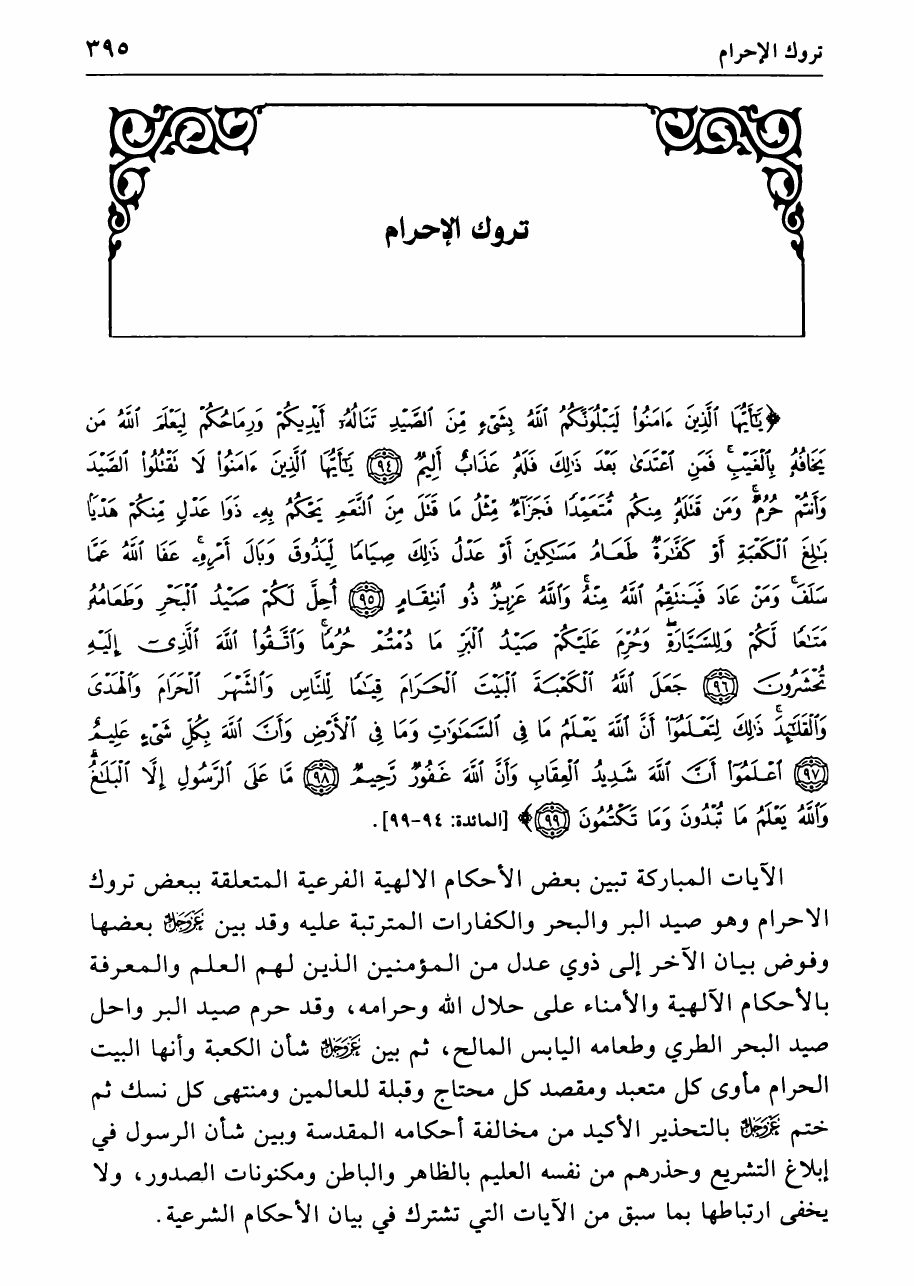 تروك الإحرام ٣٩٥
تروك الإحرام
﴿يَٰٓأَيُّهَا ٱلَّذِينَ ءَامَنُوا۟ لَيَبْلُوَنَّكُمُ ٱللَّهُ بِشَىْءٍ مِّنَ ٱلصَّيْدِ تَنَالُهُۥٓ أَيْدِيكُمْ وَرِمَاحُكُمْ لِيَعْلَمَ ٱللَّهُ مَن
يَخَافُهُۥ بِٱلْغَيْبِ ۚ فَمَنِ ٱعْتَدَىٰ بَعْدَ ذَٰلِكَ فَلَهُۥ عَذَابٌ أَلِيمٌ ﴿٩٤﴾ يَٰٓأَيُّهَا ٱلَّذِينَ ءَامَنُوا۟ لَا تَقْتُلُوا۟ ٱلصَّيْدَ
وَأَنتُمْ حُرُمٌ ۚ وَمَن قَتَلَهُۥ مِنكُم مُّتَعَمِّدًا فَجَزَآءٌ مِّثْلُ مَا قَتَلَ مِنَ ٱلنَّعَمِ يَحْكُمُ بِهِۦ ذَوَا عَدْلٍ مِّنكُمْ هَدْيًۢا
بَٰلِغَ ٱلْكَعْبَةِ أَوْ كَفَّٰرَةٌ طَعَامُ مَسَٰكِينَ أَوْ عَدْلُ ذَٰلِكَ صِيَامًا لِّيَذُوقَ وَبَالَ أَمْرِهِۦ ۗ عَفَا ٱللَّهُ عَمَّا
سَلَفَ ۚ وَمَنْ عَادَ فَيَنتَقِمُ ٱللَّهُ مِنْهُ ۗ وَٱللَّهُ عَزِيزٌ ذُو ٱنتِقَامٍ ﴿٩٥﴾ أُحِلَّ لَكُمْ صَيْدُ ٱلْبَحْرِ وَطَعَامُهُۥ
مَتَٰعًا لَّكُمْ وَلِلسَّيَّارَةِ ۖ وَحُرِّمَ عَلَيْكُمْ صَيْدُ ٱلْبَرِّ مَا دُمْتُمْ حُرُمًا ۗ وَٱتَّقُوا۟ ٱللَّهَ ٱلَّذِىٓ إِلَيْهِ
تُحْشَرُونَ ﴿٩٦﴾ جَعَلَ ٱللَّهُ ٱلْكَعْبَةَ ٱلْبَيْتَ ٱلْحَرَامَ قِيَٰمًا لِّلنَّاسِ وَٱلشَّهْرَ ٱلْحَرَامَ وَٱلْهَدْىَ
وَٱلْقَلَٰٓئِدَ ۚ ذَٰلِكَ لِتَعْلَمُوٓا۟ أَنَّ ٱللَّهَ يَعْلَمُ مَا فِى ٱلسَّمَٰوَٰتِ وَمَا فِى ٱلْأَرْضِ وَأَنَّ ٱللَّهَ بِكُلِّ شَىْءٍ عَلِيمٌ
﴿٩٧﴾ ٱعْلَمُوٓا۟ أَنَّ ٱللَّهَ شَدِيدُ ٱلْعِقَابِ وَأَنَّ ٱللَّهَ غَفُورٌ رَّحِيمٌ ﴿٩٨﴾ مَّا عَلَى ٱلرَّسُولِ إِلَّا ٱلْبَلَٰغُ ۗ
وَٱللَّهُ يَعْلَمُ مَا تُبْدُونَ وَمَا تَكْتُمُونَ ﴿٩٩﴾﴾ [المائدة: ٩٤-٩٩].
الآيات المباركة تبين بعض الأحكام الالهية الفرعية المتعلقة ببعض تروك
الاحرام وهو صيد البر والبحر والكفارات المترتبة عليه وقد بين عَزَّوَجَلَّ بعضها
وفوض بيان الآخر إلى ذوي عدل من المؤمنين الذين لهم العلم والمعرفة
بالأحكام الآلهية والأمناء على حلال الله وحرامه، وقد حرم صيد البر واحل
صيد البحر الطري وطعامه اليابس المالح، ثم بين عَزَّوَجَلَّ شأن الكعبة وأنها البيت
الحرام مأوى كل متعبد ومقصد كل محتاج وقبلة للعالمين ومنتهى كل نسك ثم
ختم عَزَّوَجَلَّ بالتحذير الأكيد من مخالفة أحكامه المقدسة وبين شأن الرسول في
إبلاغ التشريع وحذرهم من نفسه العليم بالظاهر والباطن ومكنونات الصدور، ولا
يخفى ارتباطها بما سبق من الآيات التي تشترك في بيان الأحكام الشرعية.